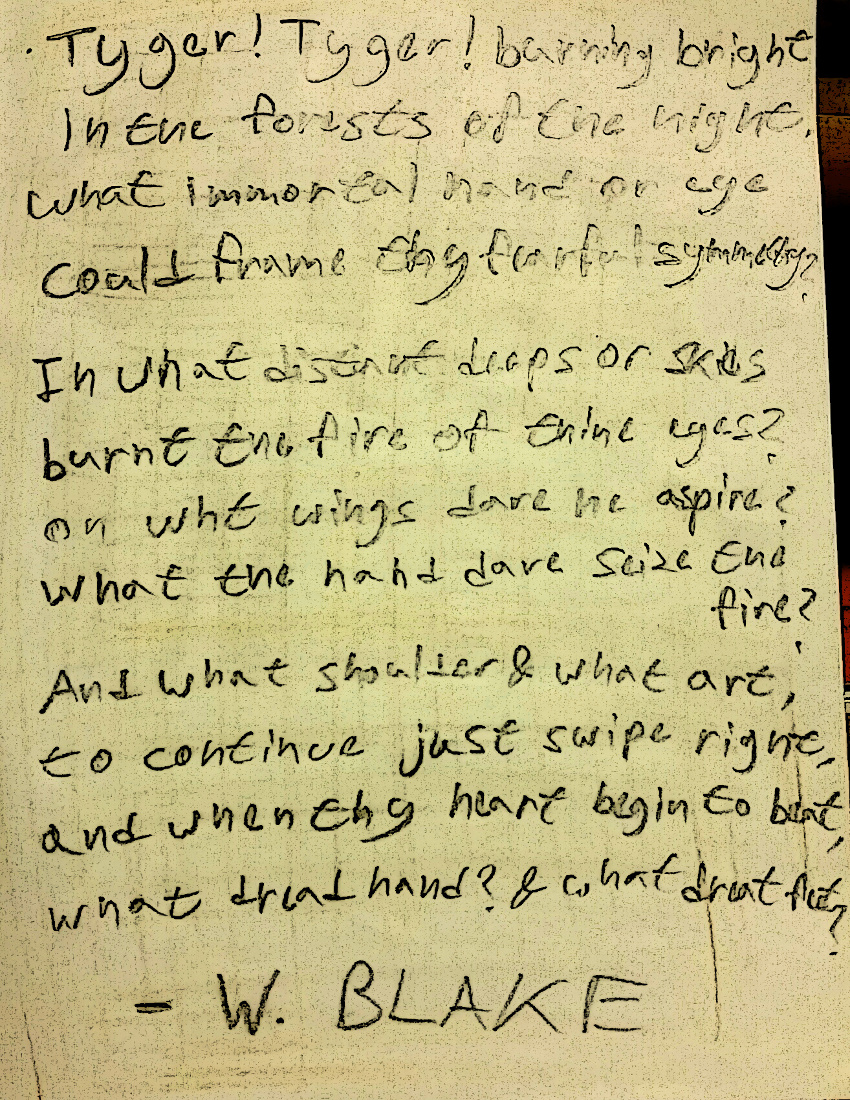 Tyger! Tyger! burning bright
In the forests of the night,
what immortal hand or eye
could frame thy fearful symmetry?
In what distant deeps or skies
burnt the fire of thine eyes?
on wht wings dare he aspire?
what the hand dare seize the
fire?
And what shoulder & what art,
to continue just swipe right,
and when thy heart begin to beat,
what dread hand? & what dreat feet?
- W. BLAKE